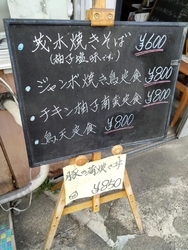 茂木焼きそば ¥600
(柚子塩味付)
・ジャンボ焼き鳥定食 ¥800
・チキン柚子南蛮定食 ¥800
・鳥天定食 ¥800
豚の蒲焼き丼
¥850